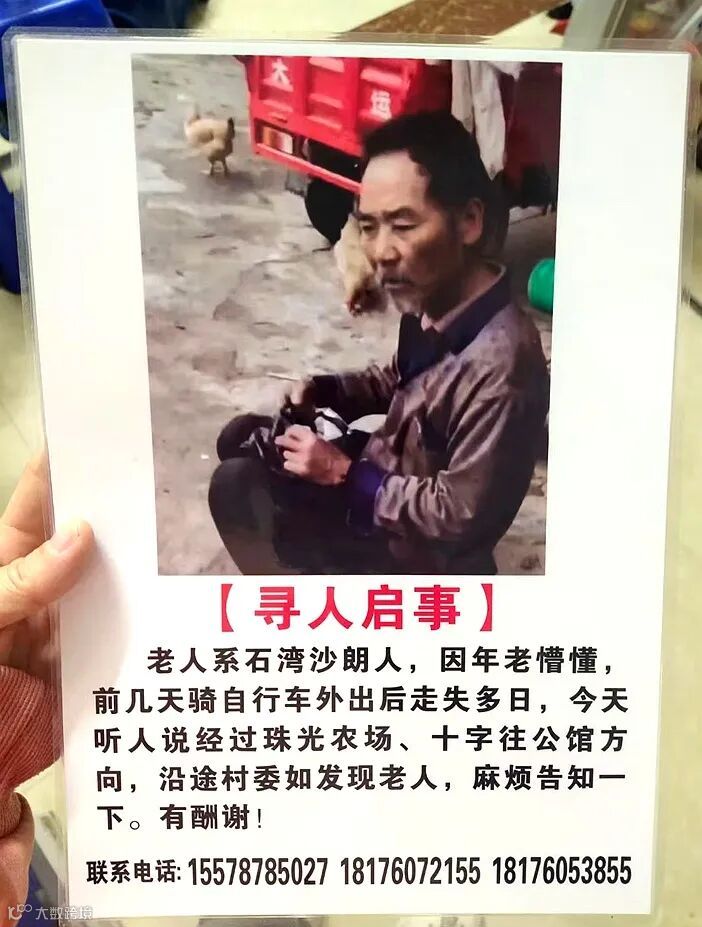 大
运
【寻人启事】
老人系石湾沙朗人，因年老懵懂，
前几天骑自行车外出后走失多日，今天
听人说经过珠光农场、十字往公馆方
向，沿途村委如发现老人，麻烦告知一
下。有酬谢！
联系电话: 15578785027 18176072155 18176053855
大数跨境